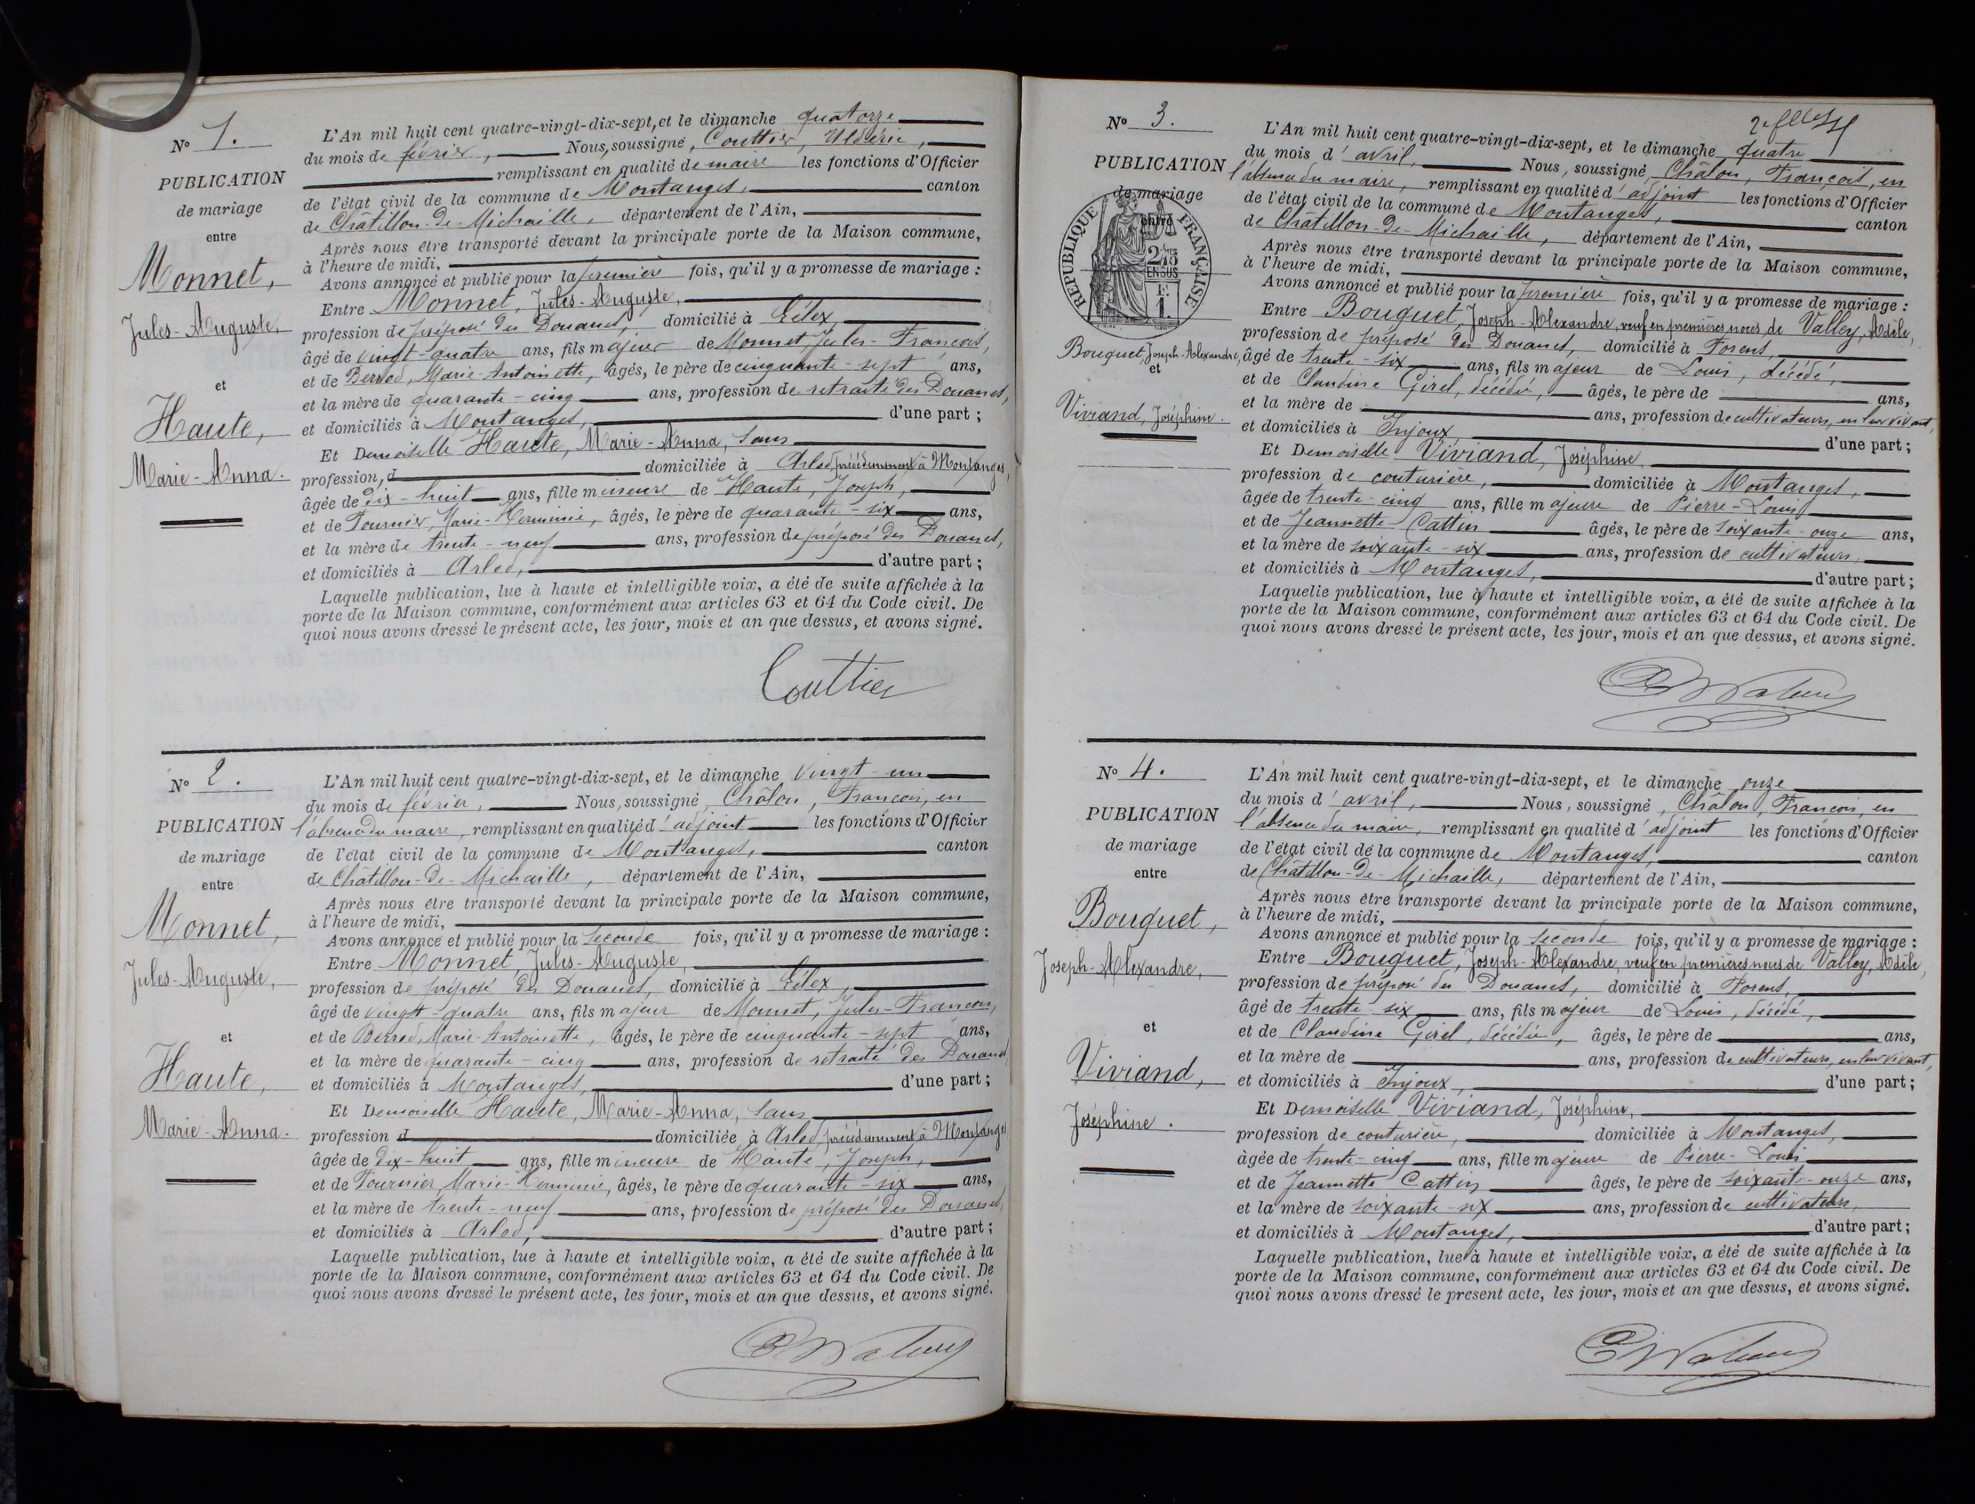 N° 1.
PUBLICATION
de mariage
entre
Monnet,
Jules-Auguste,
et
Haute,
Marie-Anna.
L'An mil huit cent quatre-vingt-dix-sept, et le dimanche quatorze
du mois de février, Nous, soussigné, Couttier,
remplissant en qualité de maire les fonctions d'Officier
de l'état civil de la commune de Montanges, canton
de Châtillon-de-Michaille, département de l'Ain,
Après nous être transporté devant la principale porte de la Maison commune,
à l'heure de midi,
Avons annoncé et publié pour la première fois, qu'il y a promesse de mariage :
Entre Monnet, Jules-Auguste,
profession de préposé des Douanes, domicilié à Lélex,
âgé de vingt-quatre ans, fils majeur de Monnet, Jules-François,
et de Berrod, Marie-Antoinette, âgés, le père de cinquante-sept ans,
et la mère de quarante-cinq ans, profession de retraité des Douanes,
et domiciliés à Montanges, d'une part ;
Et Demoiselle Haute, Marie-Anna, sans
profession, d domiciliée à Arlod, précédemment à Montanges,
âgée de dix-huit ans, fille mineure de Haute, Joseph,
et de Fournier, Marie-Herminie, âgés, le père de quarante-six ans,
et la mère de trente-neuf ans, profession de préposé des Douanes,
et domiciliés à Arlod, d'autre part ;
Laquelle publication, lue à haute et intelligible voix, a été de suite affichée à la
porte de la Maison commune, conformément aux articles 63 et 64 du Code civil. De
quoi nous avons dressé le présent acte, les jour, mois et an que dessus, et avons signé.
Couttier
N° 2.
PUBLICATION
de mariage
entre
Monnet,
Jules-Auguste,
et
Haute,
Marie-Anna.
L'An mil huit cent quatre-vingt-dix-sept, et le dimanche vingt-un
du mois de février, Nous, soussigné, Châlon, François, en
l'absence du maire, remplissant en qualité d'adjoint les fonctions d'Officier
de l'état civil de la commune de Montanges, canton
de Châtillon-de-Michaille, département de l'Ain,
Après nous être transporté devant la principale porte de la Maison commune,
à l'heure de midi,
Avons annoncé et publié pour la seconde fois, qu'il y a promesse de mariage :
Entre Monnet, Jules-Auguste,
profession de préposé des Douanes, domicilié à Lélex,
âgé de vingt-quatre ans, fils majeur de Monnet, Jules-François,
et de Berrod, Marie-Antoinette, âgés, le père de cinquante-sept ans,
et la mère de quarante-cinq ans, profession de retraité des Douanes
et domiciliés à Montanges, d'une part ;
Et Demoiselle Haute, Marie-Anna, sans
profession d domiciliée à Arlod, précédemment à Montanges
âgée de dix-huit ans, fille mineure de Haute, Joseph,
et de Fournier, Marie-Herminie, âgés, le père de quarante-six ans,
et la mère de trente-neuf ans, profession de préposé des Douanes,
et domiciliés à Arlod, d'autre part ;
Laquelle publication, lue à haute et intelligible voix, a été de suite affichée à la
porte de la Maison commune, conformément aux articles 63 et 64 du Code civil. De
quoi nous avons dressé le présent acte, les jour, mois et an que dessus, et avons signé.
N° 3.
PUBLICATION
de mariage
entre
RÉPUBLIQUE FRANÇAISE
Bouquet, Joseph-Alexandre,
et
Viviand, Joséphine.
L'An mil huit cent quatre-vingt-dix-sept, et le dimanche quatre
du mois d'avril, Nous, soussigné, Châlon, François, en
l'absence du maire, remplissant en qualité d'adjoint les fonctions d'Officier
de l'état civil de la commune de Montanges, canton
de Châtillon-de-Michaille, département de l'Ain,
Après nous être transporté devant la principale porte de la Maison commune,
à l'heure de midi,
Avons annoncé et publié pour la première fois, qu'il y a promesse de mariage :
Entre Bouquet, Joseph-Alexandre, veuf en premières noces de Valley, Adèle,
profession de préposé des Douanes, domicilié à Forens,
âgé de trente-six ans, fils majeur de Louis, décédé,
et de Claudine Girel, décédée, âgés, le père de ans,
et la mère de ans, profession de cultivateurs, en leur vivant,
et domiciliés à Injoux, d'une part ;
Et Demoiselle Viviand, Joséphine,
profession de couturière, domiciliée à Montanges,
âgée de trente-cinq ans, fille majeure de Pierre-Louis
et de Jeannette Cattin âgés, le père de soixante-onze ans,
et la mère de soixante-six ans, profession de cultivateurs,
et domiciliés à Montanges, d'autre part ;
Laquelle publication, lue à haute et intelligible voix, a été de suite affichée à la
porte de la Maison commune, conformément aux articles 63 et 64 du Code civil. De
quoi nous avons dressé le présent acte, les jour, mois et an que dessus, et avons signé.
N° 4.
PUBLICATION
de mariage
entre
Bouquet,
Joseph-Alexandre,
et
Viviand,
Joséphine.
L'An mil huit cent quatre-vingt-dix-sept, et le dimanche onze
du mois d'avril, Nous, soussigné, Châlon, François, en
l'absence du maire, remplissant en qualité d'adjoint les fonctions d'Officier
de l'état civil de la commune de Montanges, canton
de Châtillon-de-Michaille, département de l'Ain,
Après nous être transporté devant la principale porte de la Maison commune,
à l'heure de midi,
Avons annoncé et publié pour la seconde fois, qu'il y a promesse de mariage :
Entre Bouquet, Joseph-Alexandre, veuf en premières noces de Valley, Adèle,
profession de préposé des Douanes, domicilié à Forens,
âgé de trente-six ans, fils majeur de Louis, décédé,
et de Claudine Girel, décédée, âgés, le père de ans,
et la mère de ans, profession de cultivateurs, en leur vivant,
et domiciliés à Injoux, d'une part ;
Et Demoiselle Viviand, Joséphine,
profession de couturière, domiciliée à Montanges,
âgée de trente-cinq ans, fille majeure de Pierre-Louis
et de Jeannette Cattin âgés, le père de soixante-onze ans,
et la mère de soixante-six ans, profession de cultivateurs,
et domiciliés à Montanges, d'autre part ;
Laquelle publication, lue à haute et intelligible voix, a été de suite affichée à la
porte de la Maison commune, conformément aux articles 63 et 64 du Code civil. De
quoi nous avons dressé le présent acte, les jour, mois et an que dessus, et avons signé.